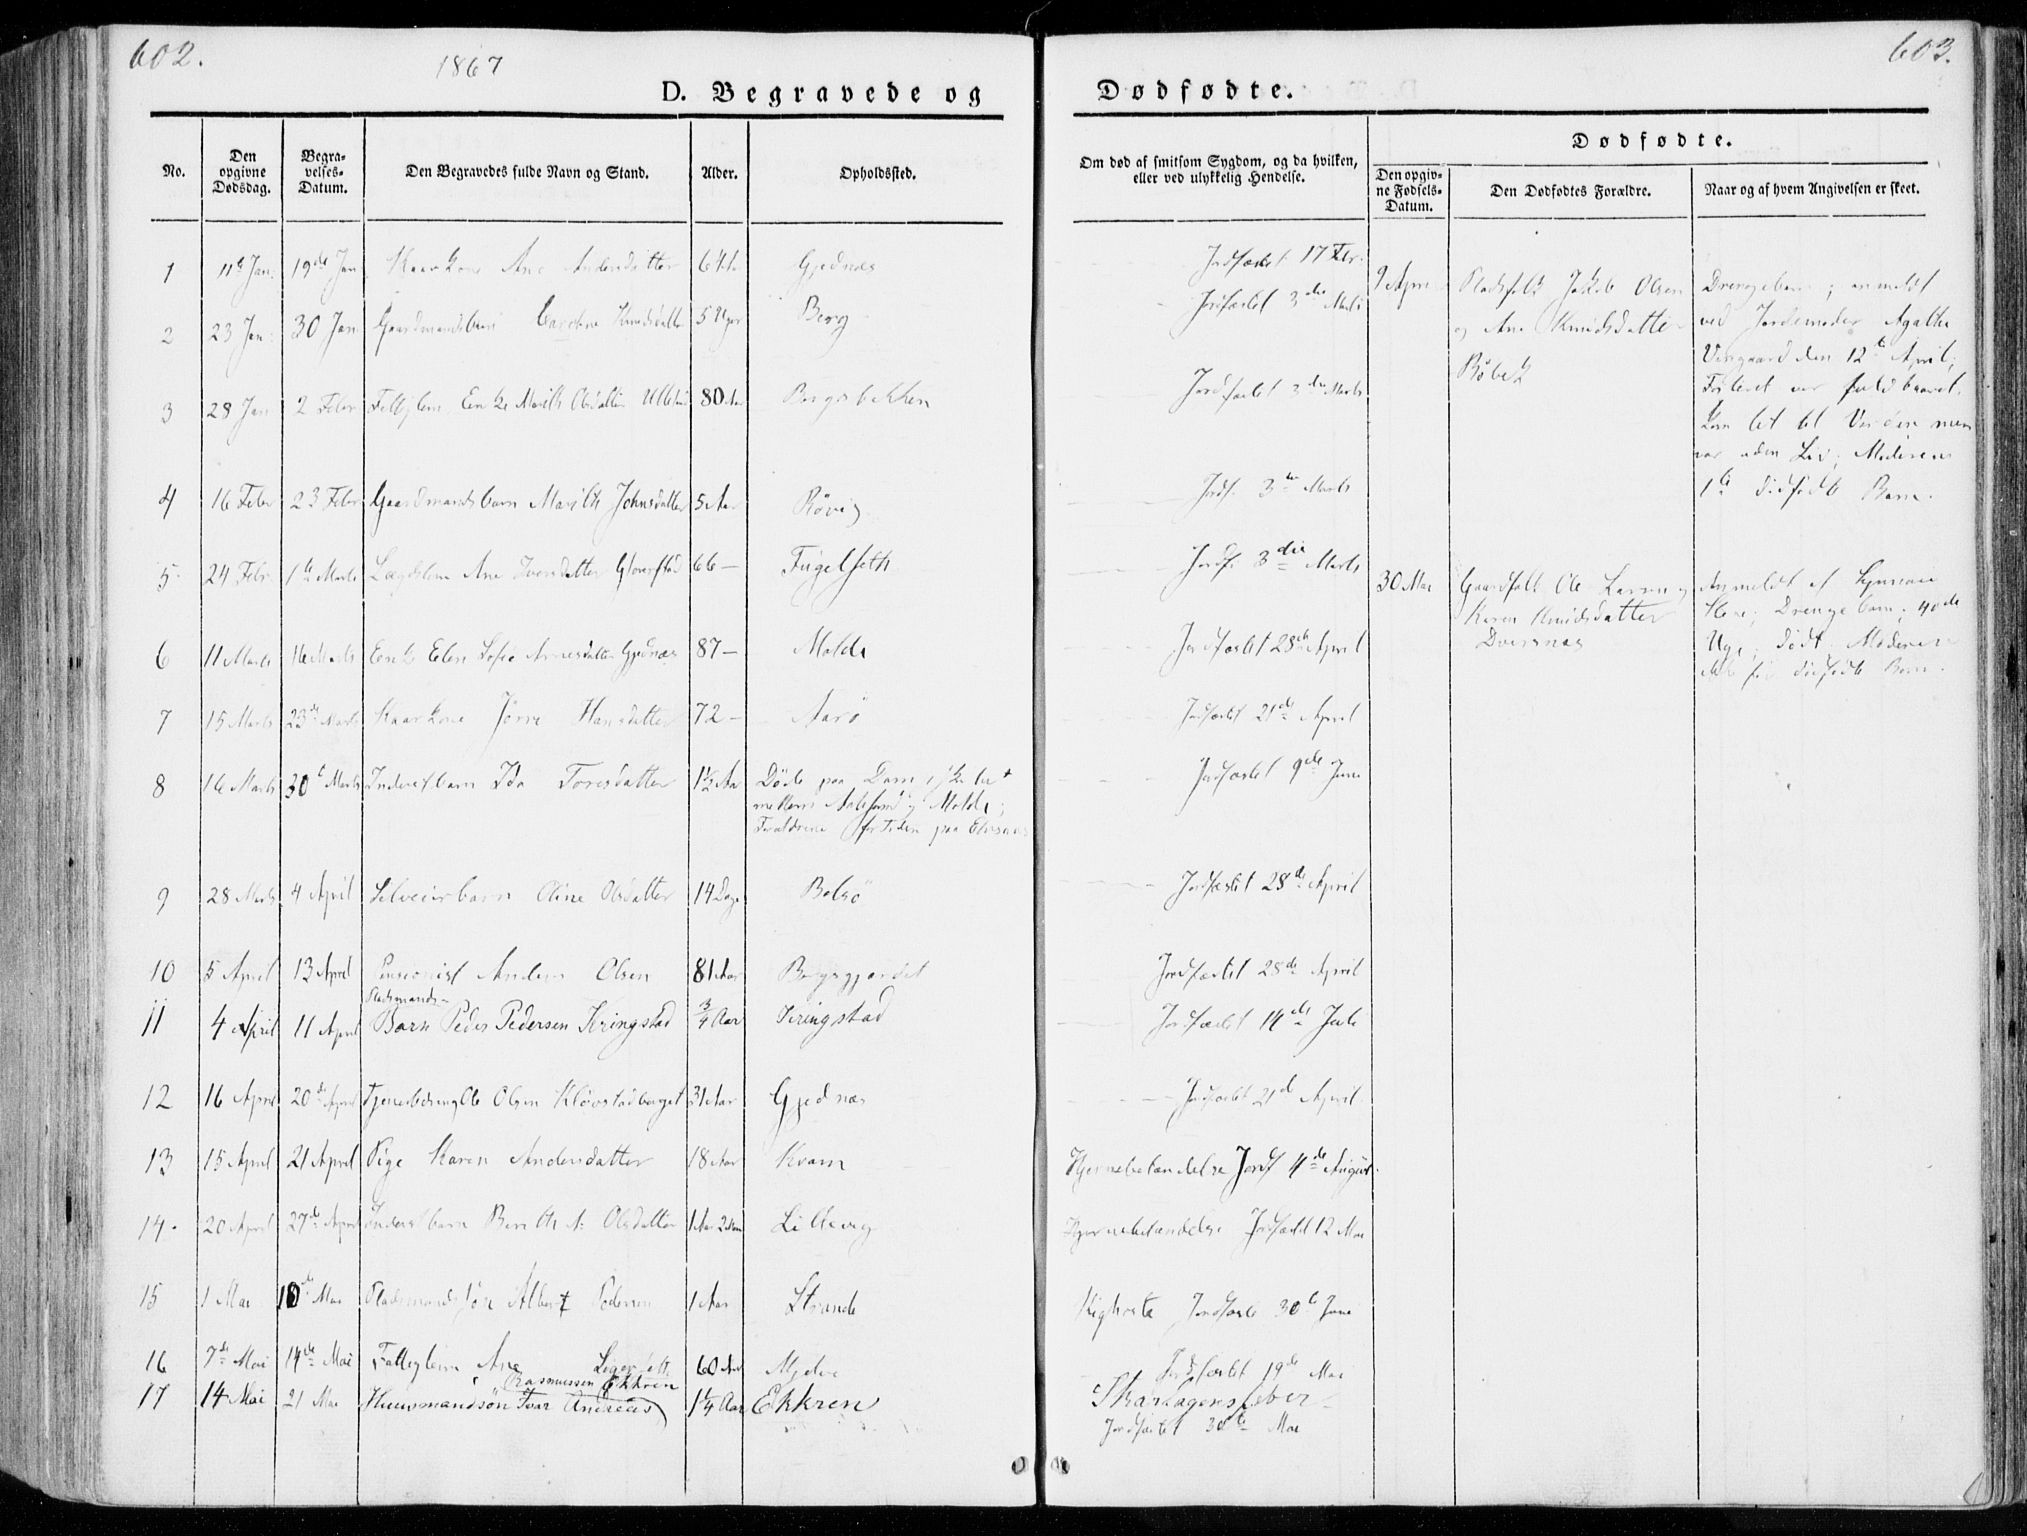 602.
1867
603.
D. Begravede og
Dødfødte.
No.
Den opgivne Dødsdag.
Begravelses-Datum.
Den Begravedes fulde Navn og Stand.
Alder.
Opholdssted.
Om død af smitsom Sygdom, og da hvilken, eller ved ulykkelig Hendelse.
Dødfødte.
Den opgivne Fødsels-Datum.
Den Dødfødtes Forældre.
Naar og af hvem Angivelsen er skeet.
1 11te Jan: 19de Jan Kaarkone Ane Andersdatter 64 Aar Gjednæs Jordfæstet 17 Febr.
2 23 Jan: 30 Jan Gaardmandsbarn Knudsdatter 5 Uger Berg Jordfæstet 3die Marts
3 28 Jan 2 Febr Enke Marith Olsdatter 80 Aar Bergsbekken Jordfæstet 3die Marts
4 16 Febr 23 Febr Gaardmandsbarn Marith Johnsdatter 5 Aar Røvig Jordf. 3die Marts
5 24 Febr. 1te Marts Lægdslem Ane Iversdatter 66 — Fugelseth Jordf. 3die Marts
6 11 Marts 16 Marts Enke Elen Sofie Arnesdatter Gjednæs 87 — Molde Jordfæstet 28de April
7 15 Marts 23de Marts Kaarkone Hansdatter 72 — Aarø Jordfæstet 21de April
8 16 Marts 30te Marts Inderstbarn Ida Toresdatter 1½ Aar Døde paa
mellem Aalesund og Molde;
Forældrene for Tiden paa
Jordfæstet 9de Juni
9 28 Marts 4 April Selveierbarn Oline Olsdatter 14 Dage Bolsø Jordfæstet 28de April
10 5 April 13 April Pensionist Anders Olsen 81 Aar Bergsgjerdet Jordfæstet 28de April
Pladsmands-
11 4 April 11 April Barn Peder Pedersen Kringstad ¾ Aar Kringstad Jordfæstet 14de Juli
12 16 April 20de April Tjenestedreng Ole Olsen Kløvstadberget 31 Aar Gjednæs Jordfæstet 21de April
13 15 April 21 April Pige Karen Andersdatter 18 Aar Kvam Hjernebetændelse Jordf 4de August
14 20 April 27de April Inderstbarn Olsdatter 1 Aar Lillevig Hjernebetændelse Jordfæstet 12 Mai
15 1 Mai 10de Mai Pladsmandssøn Albert Pedersen 1 Aar Strande Kighoste Jordfæstet 30te Juni
16 7de Mai 14de Mai Fattiglem Ane 60 Aar Jordfæstet 19de Mai
Rasmussen Ekkren
17 14 Mai 21 Mai Huusmandsøn Ivar Andreas 1¼ Aar Ekkren Skarlagensfeber
Jordfæstet 30te Mai
9 April Pladsfolk Jakob Olsen
og Ane Knudsdatter
Røbek
Drengebarn; anmeldt
ved Jordemoder Agathe
den 12te April;
Fosteret var fuldbaaret.
Kom let til Verden men
var uden Liv; Moderens
1te dødfødte Barn.
30 Mai Gaardfolk Ole Larsen og
Karen Knudsdatter
Dversnæs
Anmeldt af
Drengebarn; 40de
Uge; Født. Moderen
dødfødte Barn.